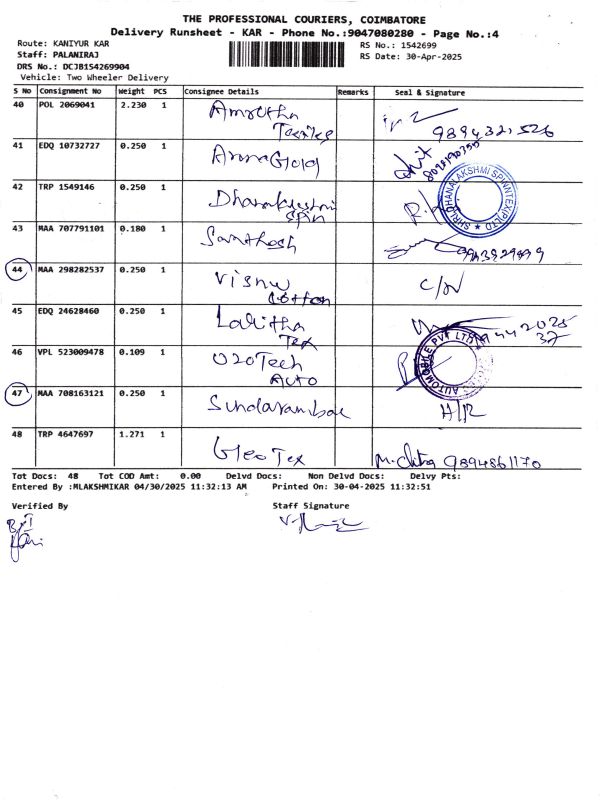 THE PROFESSIONAL COURIERS, COIMBATORE
Delivery Runsheet - KAR - Phone No.:9047080280 - Page No.:4
Route: KANIYUR KAR
RS No.: 1542699
Staff: PALANIRAJ
RS Date: 30-Apr-2025
DRS No.: DCJB154269904
Vehicle: Two Wheeler Delivery
S No Consignment No Weight PCS Consignee Details Remarks Seal & Signature
40 POL 2069041 2.230 1 Amrutha
9894321526
41 EDQ 10732727 0.250 1 AnnaGold
42 TRP 1549146 0.250 1
SHRI DHANALAKSHMI SPINNTEX(P)LTD
43 MAA 707791101 0.180 1 Santhosh
44 MAA 298282537 0.250 1 Visnu
Cotton
45 EDQ 24628460 0.250 1 Lalitha
Tex
46 VPL 523009478 0.109 1 O2OTech
Auto
AUTOMOBILE PVT LTD
47 MAA 708163121 0.250 1 H/R
48 TRP 4647697 1.271 1 GeoTex
9894861170
Tot Docs: 48 Tot COD Amt: 0.00 Delvd Docs: Non Delvd Docs: Delvy Pts:
Entered By :MLAKSHMIKAR 04/30/2025 11:32:13 AM Printed On: 30-04-2025 11:32:51
Verified By
Staff Signature